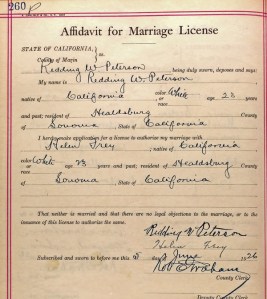 260
Affidavit for Marriage License
STATE OF CALIFORNIA,
County of Marin } ss.
Redding W. Peterson being duly sworn, deposes and says:
My name is Redding W. Peterson
native of California color or race White age 23
years and past; resident of Healdsburg County
of Sonoma, State of California
I hereby make application for license to authorize my marriage with
Helen Frey native of California
color or race White age 23 years and past; resident of Healdsburg
County of Sonoma, State of California
That neither is married and that there are no legal objections to the marriage, or to the
issuance of this license to authorize the same.
Redding W Peterson
Helen Frey
Subscribed and sworn to before me this June 1926
Rob E Graham,
County Clerk
Deputy County Clerk